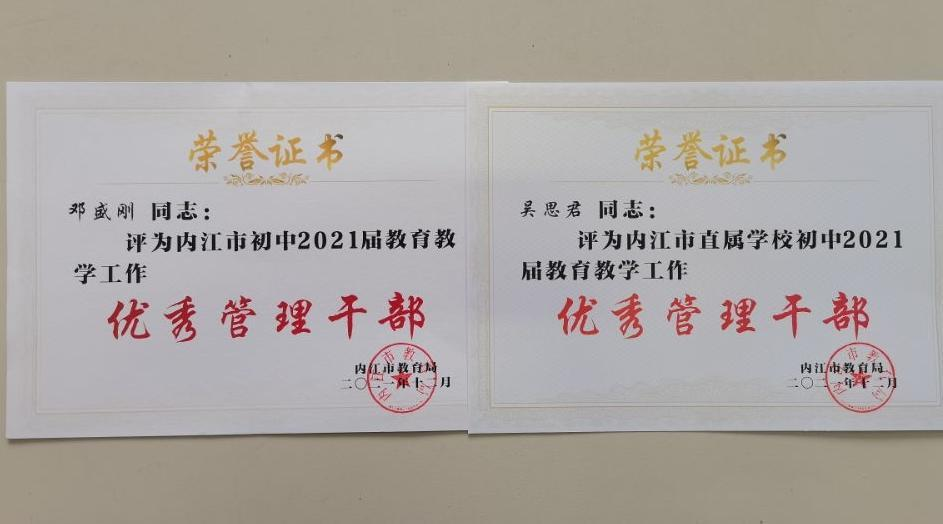 荣誉证书
邓盛刚 同志：
评为内江市初中2021届教育教
学工作
优秀管理干部
内江市教育局
二〇二一年十二月
荣誉证书
吴思君 同志：
评为内江市直属学校初中2021
届教育教学工作
优秀管理干部
内江市教育局
二〇二一年十二月